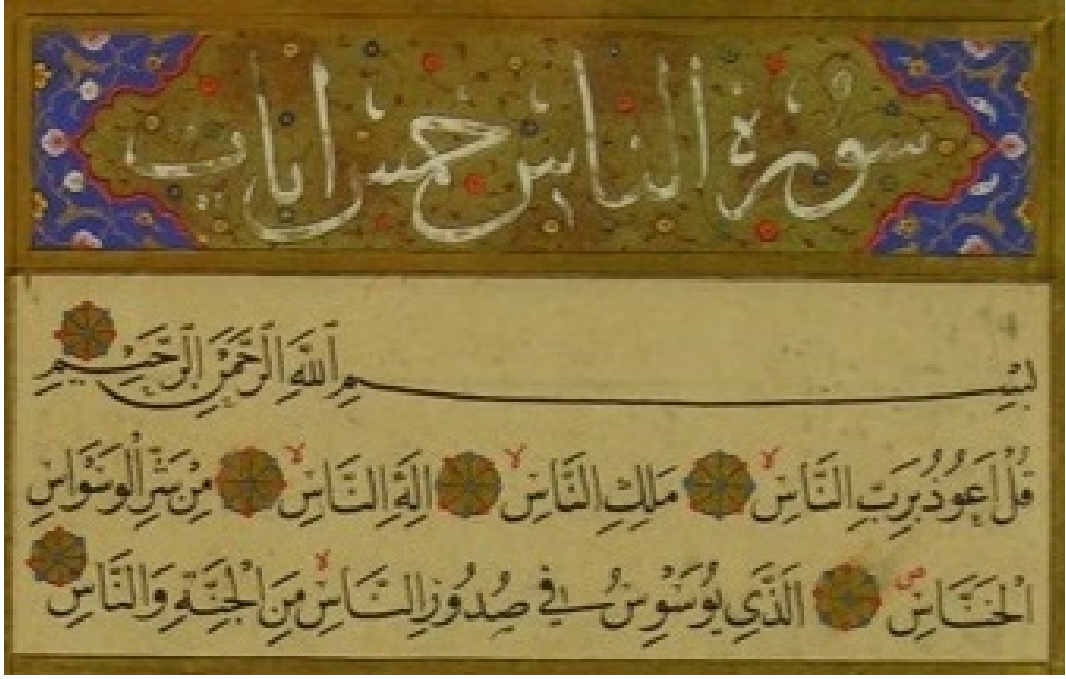 سورة الناس خمس ايات
بِسْمِ اللَّهِ الرَّحْمَٰنِ الرَّحِيمِ
قُلْ اَعُوذُ بِرَبِّ النَّاسِ لا مَلِكِ النَّاسِ لا اِلَٰهِ النَّاسِ لا مِنْ شَرِّ الْوَسْوَاسِ
الْخَنَّاسِ ص الَّذِي يُوَسْوِسُ فِي صُدُورِ النَّاسِ لا مِنَ الْجِنَّةِ وَالنَّاسِ